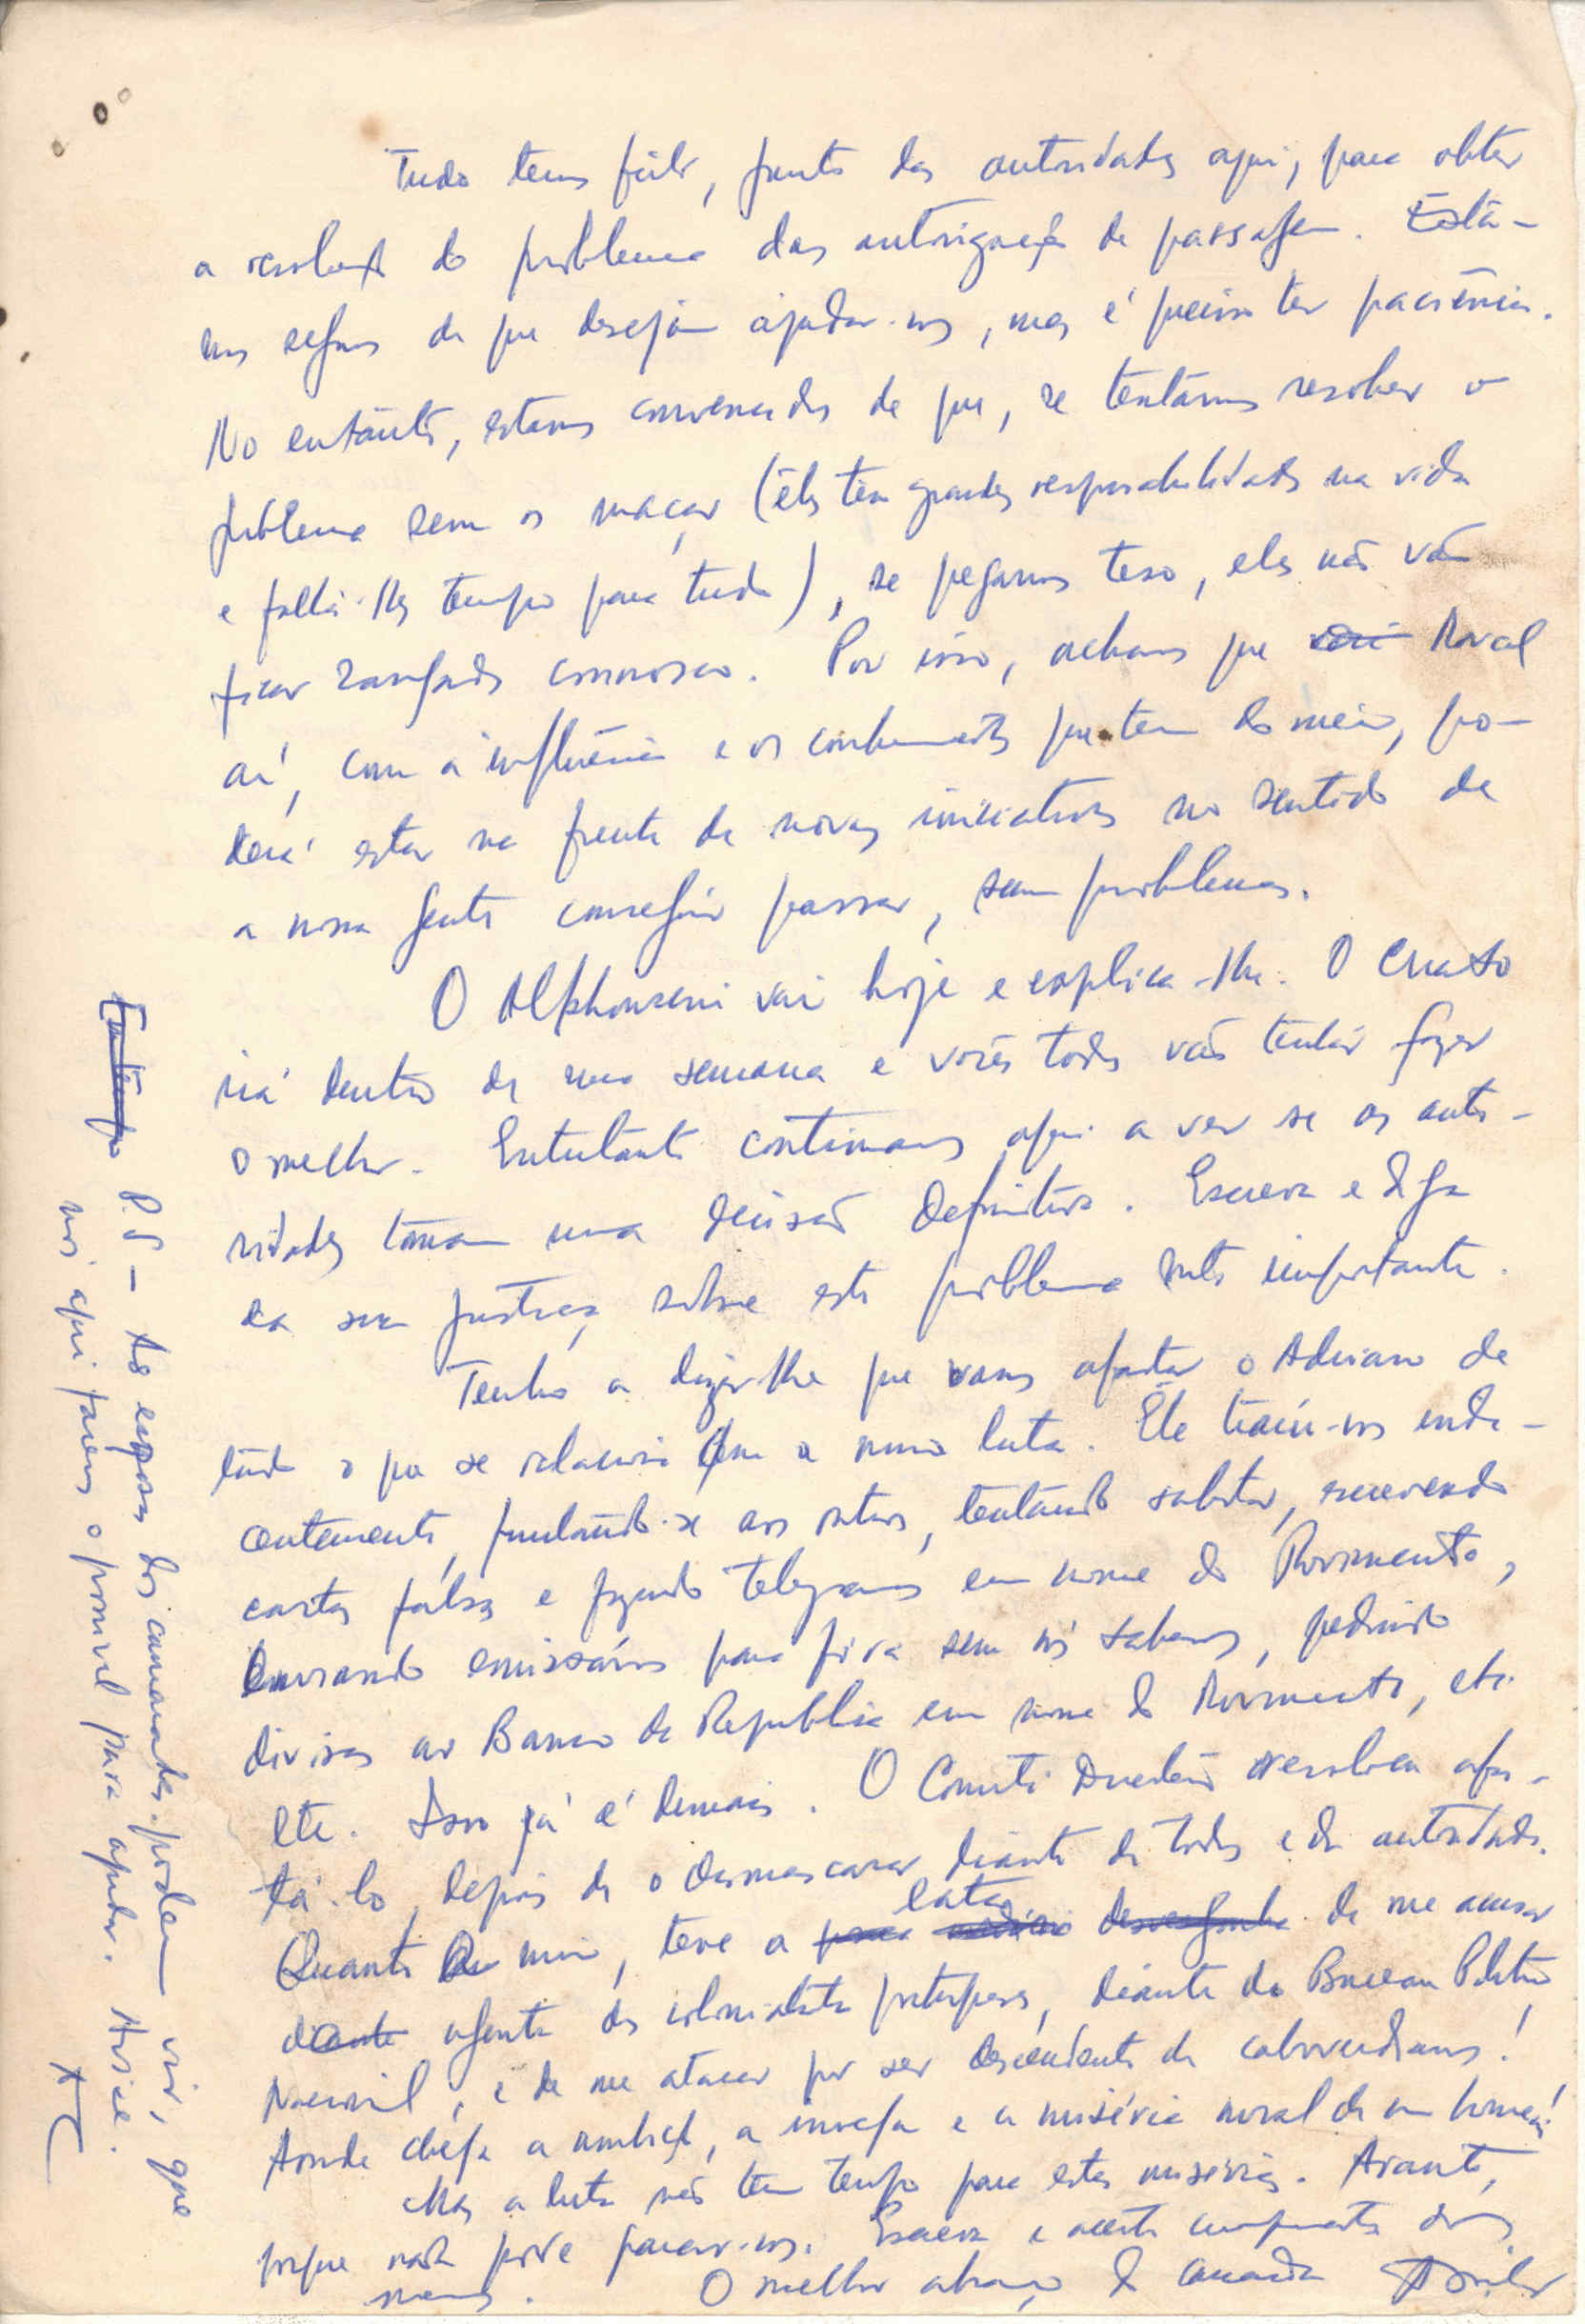 Tudo temos feito, junto das autoridades aqui, para obter
a resolução do problema das autorizações de passagem. Está-
mos seguros de que desejam ajudar-nos, mas é preciso ter paciência.
No entanto, estamos convencidos de que, se tentármos resolver o
problema sem os maçar (êles têm grandes responsabilidades na vida
e falta-lhes tempo para tudo), se pegarmos teso, eles não vão
ficar zangados connosco. Por isso, achamos que
aí, com a influência e os conhecimentos que tem do meio, po-
derá estar na frente de novas iniciativas no sentido de
a nossa gente conseguir passar, sem problemas.
O Alphonseni vai hoje e explica-lhe. O
irá dentro de uma semana e vocês todos vão tentar fazer
o melhor. Entretanto continuamos aqui a ver se as auto-
ridades tomam uma decisão definitiva. Escreva e diga
da sua justiça, sobre este problema muito importante.
Tenho a dizer-lhe que vamos afastar o Adriano de
tudo o que se relaciona com a nossa luta. Êle traíu-nos inde-
centemente, juntando-se aos outros, tentando sabotar, escrevendo
cartas falsas e fazendo telegramas em nome do Movimento,
enviando emissários para fóra sem nós sabermos, pedindo
divisas ao Banco da Republica em nome do Movimento, etc.
etc. Isso já é demais. O Comité Director resolveu afas-
tá-lo, depois de o desmascarar diante de todos e da autoridade.
Quanto a mim, teve a lata de me acusar
agente dos colonialistas portugueses, diante do Bureau Politico
Nacional, e de me atacar por ser descendente de caboverdianos!
Aonde chega a ambição, a inveja e a miséria moral de um homem!
Mas a luta não tem tempo para estas misérias. Avante,
porque nada póde parar-nos. Escreva e aceite cumprimentos dos
manos. O melhor abraço do camarada
P.S — As esposas dos camaradas podem vir, que
nós aqui faremos o possivel para ajudar. Avise.